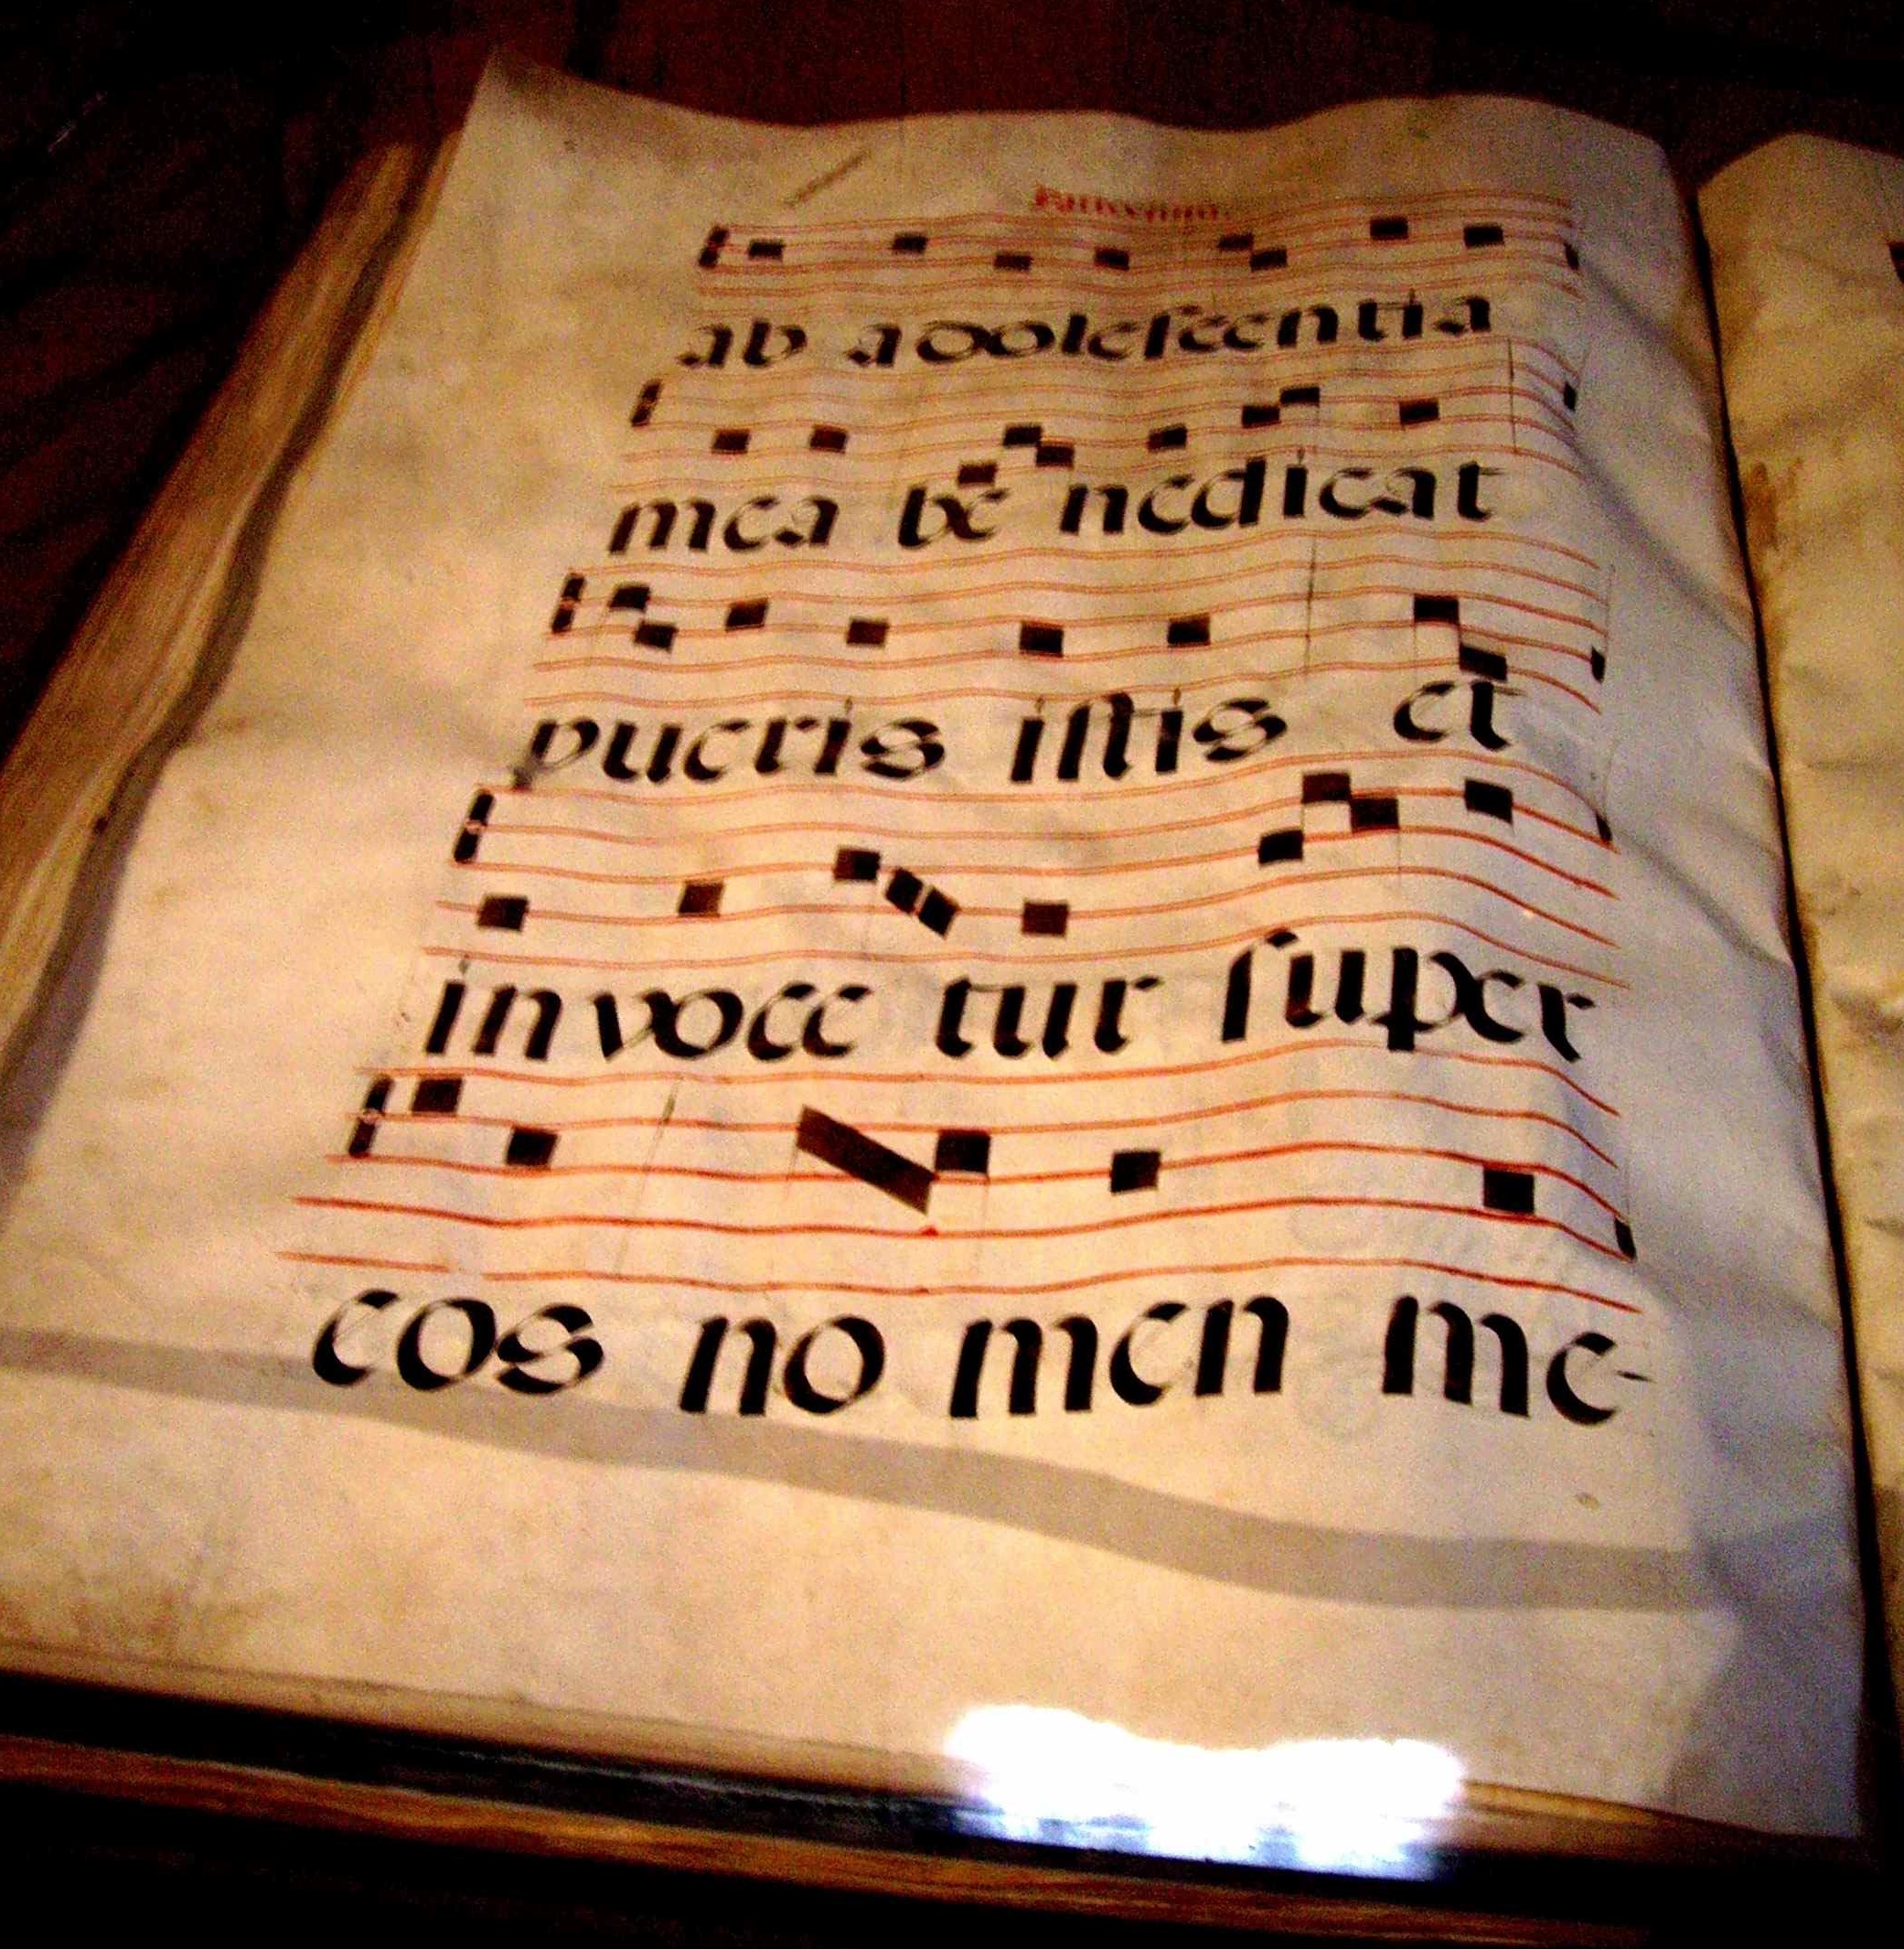 ab adoleſcentia
mea be nedicat
pueris iſtis et
invoce tur ſuper
eos no men me-